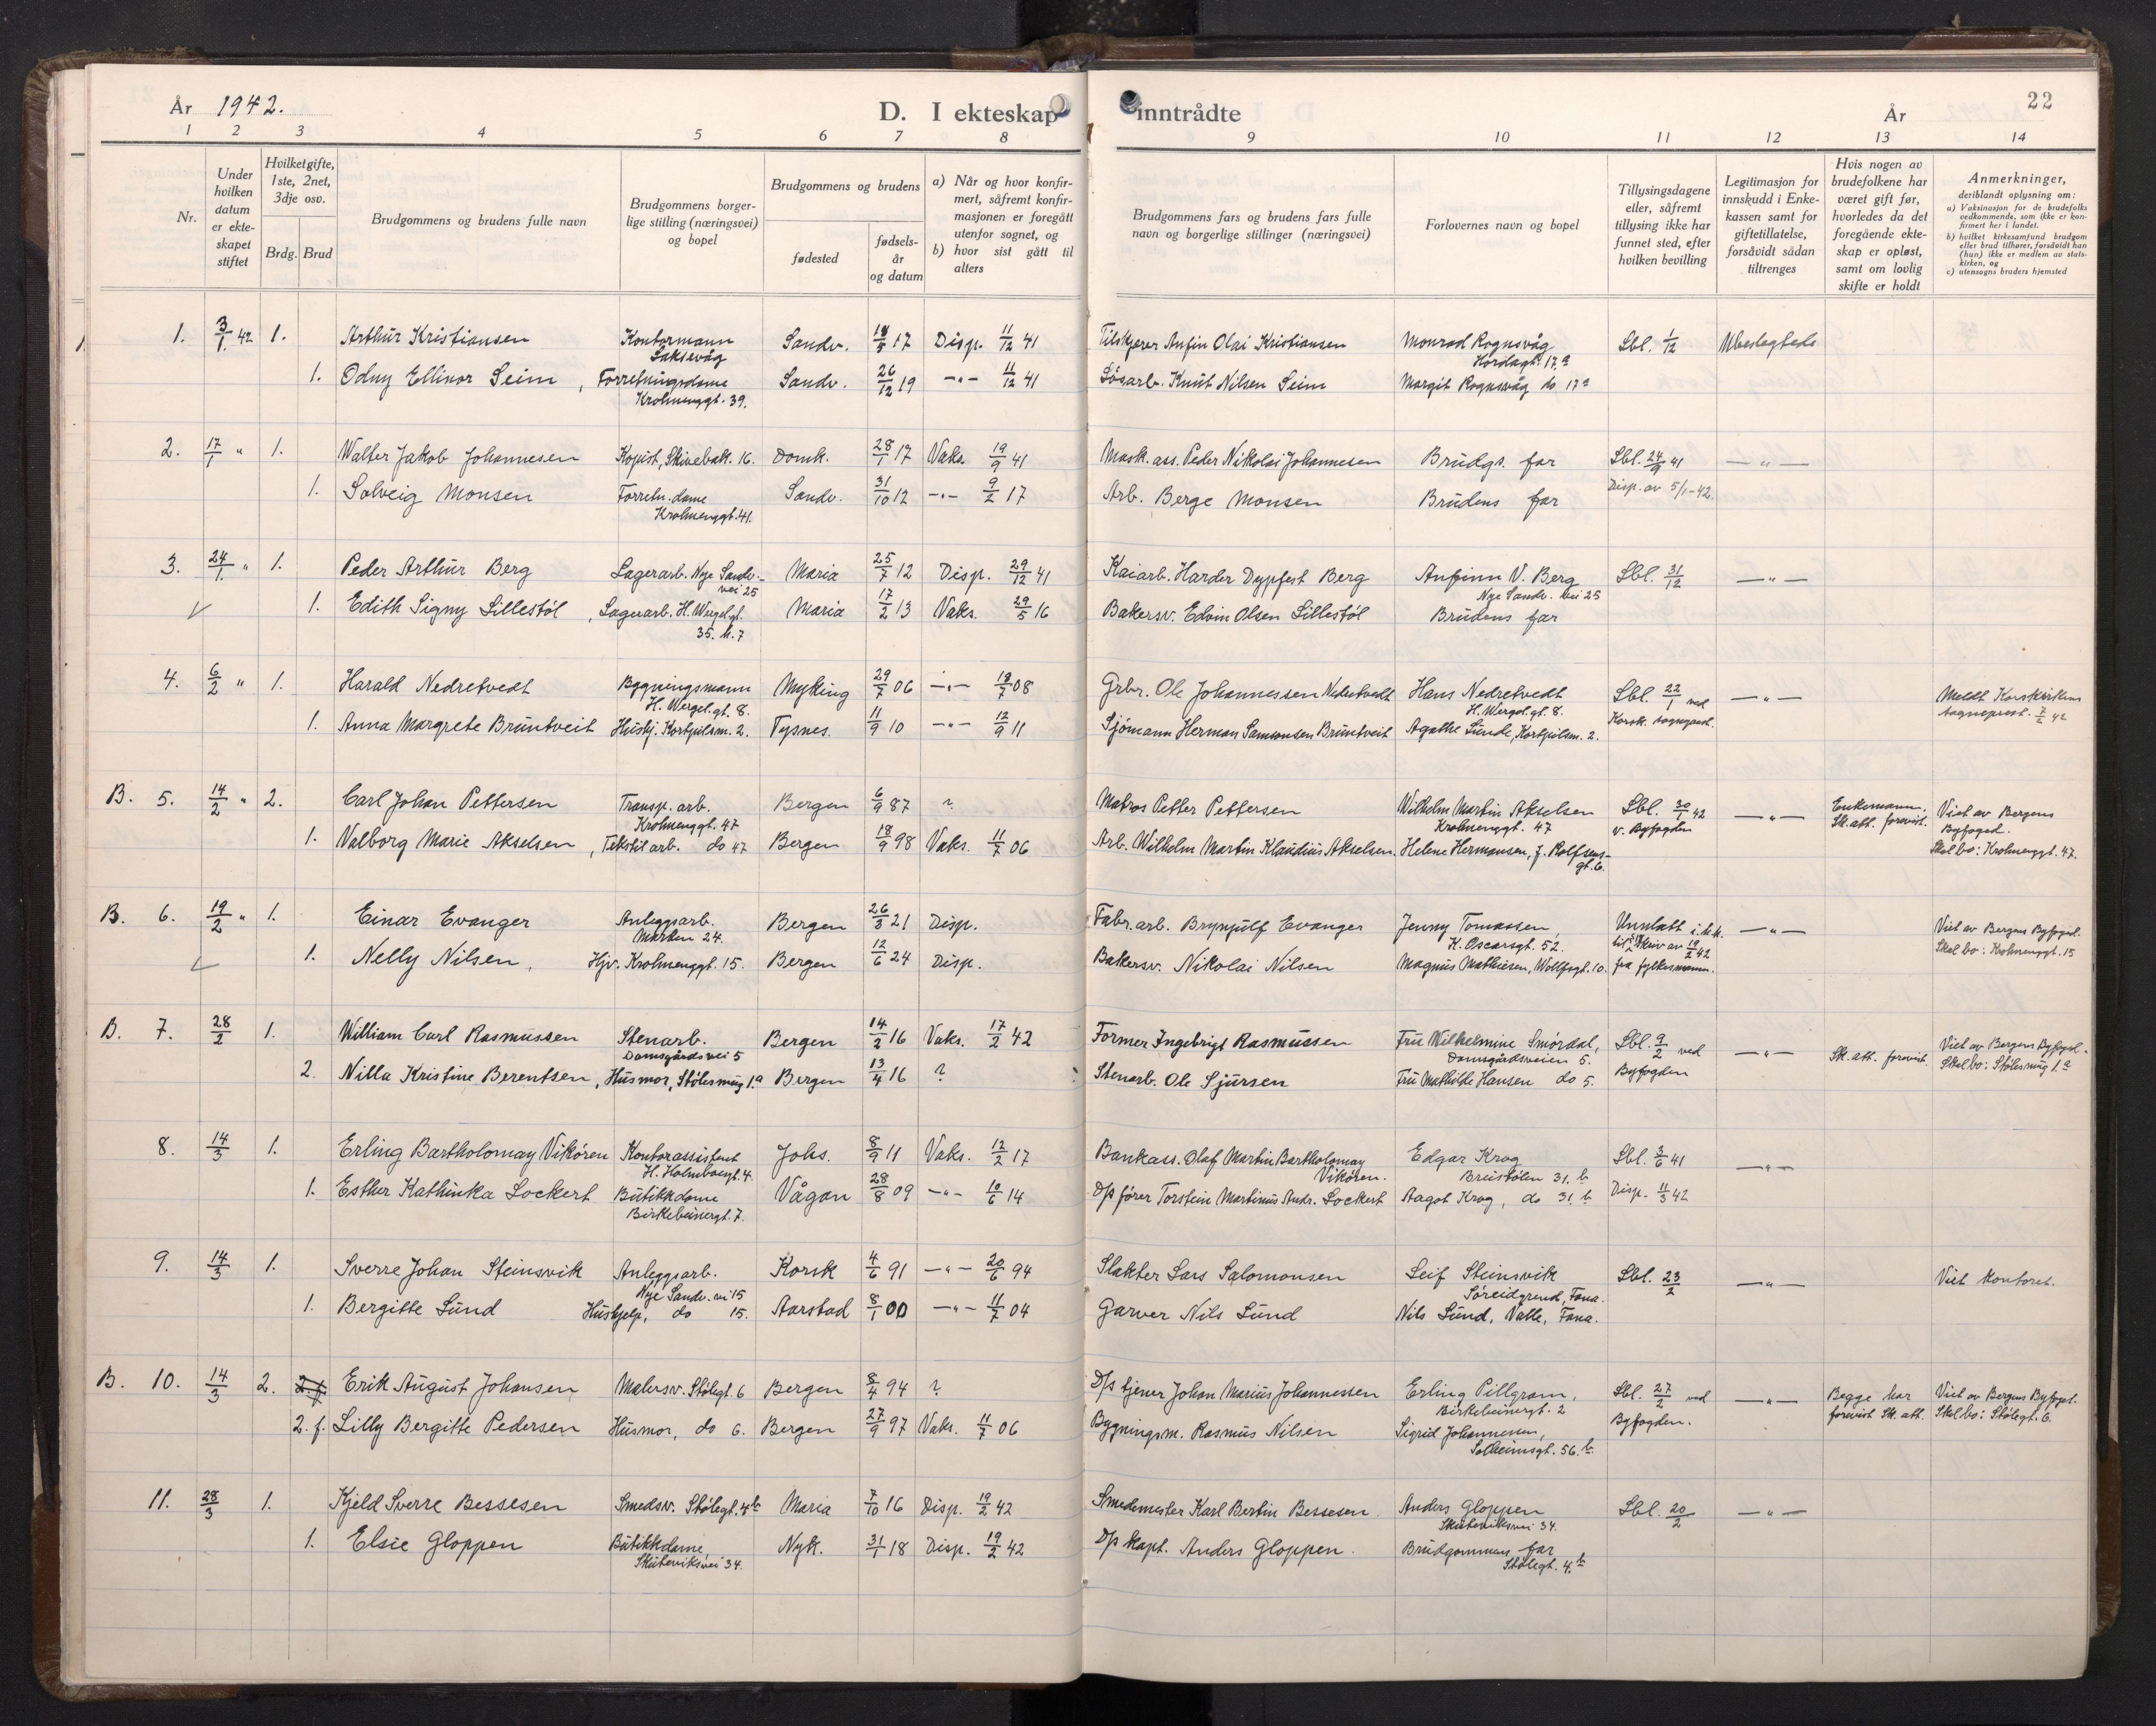 År 1942. D. I ekteskap inntrådte År 22
1 2 3 4 5 6 7 8 9 10 11 12 13 14
Nr.
Under hvilken datum er ekteskapet stiftet
Hvilket gifte, 1ste, 2net, 3dje osv.
Brdg. Brud
Brudgommens og brudens fulle navn
Brudgommens borgerlige stilling (næringsvei) og bopel
Brudgommens og brudens
fødested
fødselsår og datum
a) Når og hvor konfirmert, såfremt konfirmasjonen er foregått utenfor sognet, og
b) hvor sist gått til alters
Brudgommens fars og brudens fars fulle navn og borgerlige stillinger (næringsvei)
Forlovernes navn og bopel
Tillysingsdagene eller, såfremt tillysing ikke har funnet sted, efter hvilken bevilling
Legitimasjon for innskudd i Enkekassen samt for giftetillatelse, forsåvidt sådan tiltrenges
Hvis nogen av brudefolkene har været gift før, hvorledes da det foregående ekteskap er opløst, samt om lovlig skifte er holdt
Anmerkninger,
deriblandt oplysning om:
a) Vaksinasjon for de brudefolks vedkommende, som ikke er konfirmert her i landet.
b) hvilket kirkesamfund brudgom eller brud tilhører, forsåvidt han (hun) ikke er medlem av statskirken, og
c) utensogns bruders hjemsted
1. 3/1 42 1. Arthur Kristiansen Kontormann Sandv. 17 Disp. 11/12 41 Anfin Olai Kristiansen Monrad Rognsvåg Lbl. 1/12 Ubeslegtede
Laksevåg Hordagt. 17.a
1. Odny Ellinor Seim, Forretningsdame Sandv. 26/12 19 -"- 11/12 41 Løsarb. Knut Nilsen Seim Margit Rognsvåg do 17a
Krohnenggt. 39.
2. 17/1 " 1. Walter Jakob Johannesen Kopist, Skivebak. 16. Domk. 28/1 17 Vaks. 19/9 41 Mask. ass. Peder Nikolai Johannesen Brudgs. far Lbl. 41 -"-
1. Solveig Monsen Forretn. dame Sandv. 31/10 12 -"- 9/2 17 Arb. Berge Monsen Brudens far Disp. av 5/1-42.
Krohnenggt. 41.
3. 24/1. " 1. Peder Arthur Berg Lagerarb. Nye Sandv.- Maria 25/7 12 Disp. 29/12 41 Kaiarb. Harder Dypfest Berg Anfinn V. Berg Lbl. 31/12 -"-
vei 25 Nye Sandv. vei 25
1. Edith Signy Lillestøl, Lagerarb. H. Wergel.gt. Maria 17/2 13 Vaks. 29/5 16 Bakersv. Edvin Olsen Lillestøl Brudens far
35.
4. 6/2 " 1. Harald Nedretvedt Bygningsmann Myking 29/7 06 -"- 18/7 08 Grbr. Ole Johannessen Nedretvedt Hans Nedretvedt Lbl. 22/1 ved -"- Meldt Korskirkens
H. Wergel. gt. 8. H. Wergel. gt. 8. Korsk. sogneprest. sogneprest. 7/2 42
1. Anna Margrete Bruntveit Hushj. Kortpilsm. 2. Tysnes. 11/9 10 -"- 12/9 11 Sjømann Herman Samsonsen Bruntveit Agathe Sunde, Kortpilsm. 2.
B. 5. 14/2 " 2. Carl Johan Pettersen Transp. arb. Bergen 6/9 87 ? Matros Petter Pettersen Wilhelm Martin Akselsen Lbl. 30/1 42 -"- Enkemann. Viet av Bergens
Krohnenggt. 47 Krohnenggt. 47 v. Byfogden Sk. att. forevist. Byfoged.
1. Valborg Marie Akselsen, Tekstilarb. do 47 Bergen 18/9 98 Vaks. 11/7 06 Arb. Wilhelm Martin Klaudius Akselsen. Helene Hermansen, J. Rolfsens- Skal bo: Krohnenggt. 47.
gt. 6.
B. 6. 19/2 " 1. Einar Evanger Anleggsarb. Bergen 26/3 21 Disp. Fabr. arb. Brynjulf Evanger Jenny Tomassen, Unnlatt i. h. h. -"- Viet av Bergens Byfoged.
Marken 24. K. Oscarsgt. 52. til skriv av 19/2 42 Skal bo: Krohnenggt. 15
1. Nelly Nilsen, Hjv. Krohnenggt. 15. Bergen 12/6 24 Disp. Bakersv. Nikolai Nilsen Magnus Mathiesen, Wolffsgt. 10. fra fylkesmann.
B. 7. 28/2 1. William Carl Rasmussen Stenarb. Bergen 14/2 16 Vaks. 17/2 42 Former Ingebrigt Rasmussen Fru Wilhelmine Smørdal, Lbl. 9/2 ved -"- Sk. att. forevist. Viet av Bergens Byfoged.
Damsgårdsvei 5 Damsgårdsveien 5. Byfogden Skal bo: Stølesmug 1.a
2. Nilla Kristine Berentsen, Husmor, Stølesmug 1.a Bergen 13/4 16 ? Stenarb. Ole Sjursen Fru Mathilde Hansen do 5.
8. 14/3 1. Erling Bartholomay Vikøren Kontorassistent Johs. 8/9 11 Vaks. 12/2 17 Bankass. Olaf Martin Bartholomay Edgar Krog Lbl. 3/6 41 -"-
H. Holmboesgt. 4. Vikøren. Breistølen 31. b
1. Esther Kathinka Lockert Butikkdame Vågan 28/8 09 -"- 10/6 14 D/s fører Torstein Martinus Andr. Lockert Aagot Krog, do 31. b Disp. 11/3 42
Birkebeinergt. 7.
9. 14/3 1. Sverre Johan Steinsvik Anleggsarb. Korsk 4/6 91 -"- 20/6 94 Slakter Lars Salomonsen Leif Steinsvik Lbl. 23/2 -"- Viet kontoret.
Nye Sandv. vei 15 Søreidgrend, Fana.
1. Bergitte Lund Hushjelp, do 15. Aarstad 8/1 00 -"- 11/7 04 Garver Nils Lund Nils Lund, Valle, Fana.
B. 10. 14/3 2. Erik August Johansen Malersv. Stølegt. 6 Bergen 8/4 94 ? D/s tjener Johan Marius Johannessen Erling Pillgram, Lbl. 27/2 ved -"- Begge har Viet av Bergens Byfoged.
Birkebeinergt. 2 Byfogden. forevist Sk. att. Skal bo: Stølegt. 6.
2. f. Lilly Bergitte Pedersen Husmor, do 6. Bergen 27/9 97 Vaks. 11/7 06 Bygningsm. Rasmus Nilsen Sigrid Johannessen,
Solheimsgt. 56. b.
11. 28/3 1. Kjeld Sverre Bessesen Smedsv. Stølegt. 4b Maria 7/10 16 Disp. 19/2 42 Smedemester Karl Bertin Bessesen. Anders Gloppen Lbl. 20/2 -"-
Skuteviksvei 34.
1. Elsie Gloppen Butikkdame Nyk. 31/1 18 Disp. 19/2 42 D/s kapt. Anders Gloppen. Brudgommens far
Skuteviksvei 34. Stølegt. 4.b